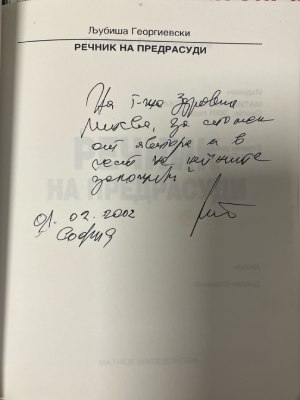 Љубиша Георгиевски
РЕЧНИК НА ПРЕДРАСУДИ
На г-жа Здравка
за спомен
от автора и в
чест на нейните
01.02.2002
София